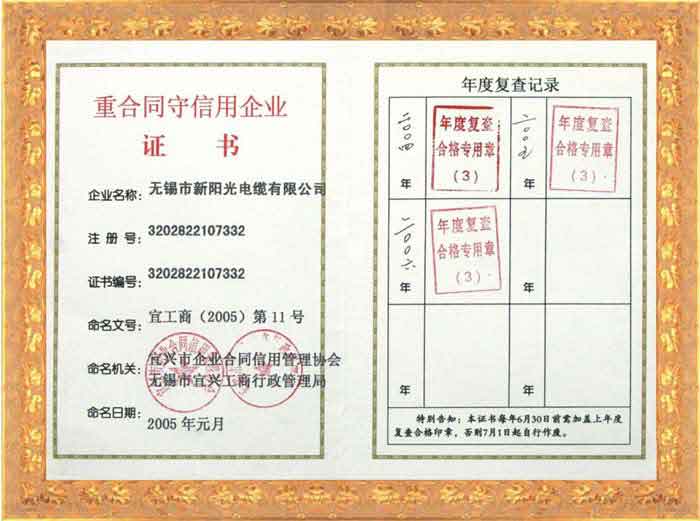 重合同守信用企业
证 书
企业名称： 无锡市新阳光电缆有限公司
注 册 号： 3202822107332
证书编号： 3202822107332
命名文号： 宜工商（2005）第11号
命名机关： 宜兴市企业合同信用管理协会
无锡市宜兴工商行政管理局
命名日期： 2005年元月
年度复查记录
二〇〇四 年
年度复查
合格专用章
（3）
二〇〇五 年
年度复查
合格专用章
（3）
二〇〇六 年
年度复查
合格专用章
（3）
年
年
年
特别告知：本证书每年6月30日前需加盖上年度
复查合格印章，否则7月1日起自行作废。